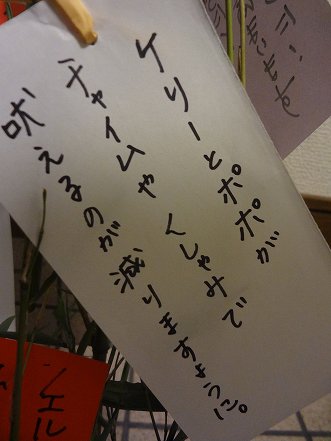 ケリーとポポが
チャイムや くしゃみで
吠えるのが減りますように
シエル